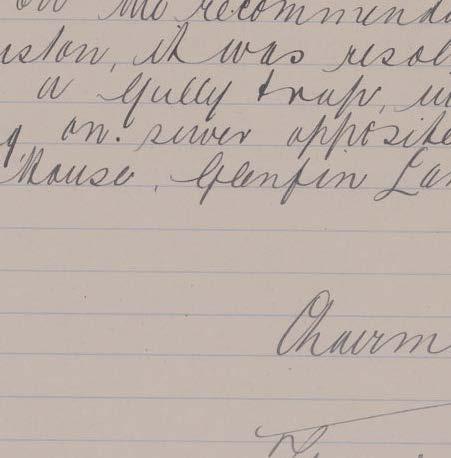 on the recommenda
uston, it was resol
a Gully trap, in
g on. sewer opposite
House, Glenfin Lan
Chairm